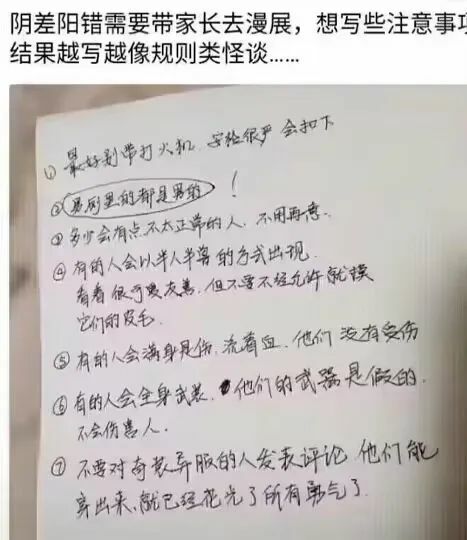 阴差阳错需要带家长去漫展，想写些注意事项
结果越写越像规则类怪谈……
① 最好别带打火机，安检很严 会扣下
② 男厕里的都是男的！
③ 多少会有点不太正常的人，不用再意.
④ 有的人会以半人半兽的方式出现.
看着很可爱友善，但不要不经允许就摸
它们的皮毛.
⑤ 有的人会满身是伤，流着血，他们没有受伤
⑥ 有的人会全身武装，他们的武器是假的.
不会伤害人.
⑦ 不要对奇装异服的人发表评论 他们能
穿出来，就已经花光了所有勇气了